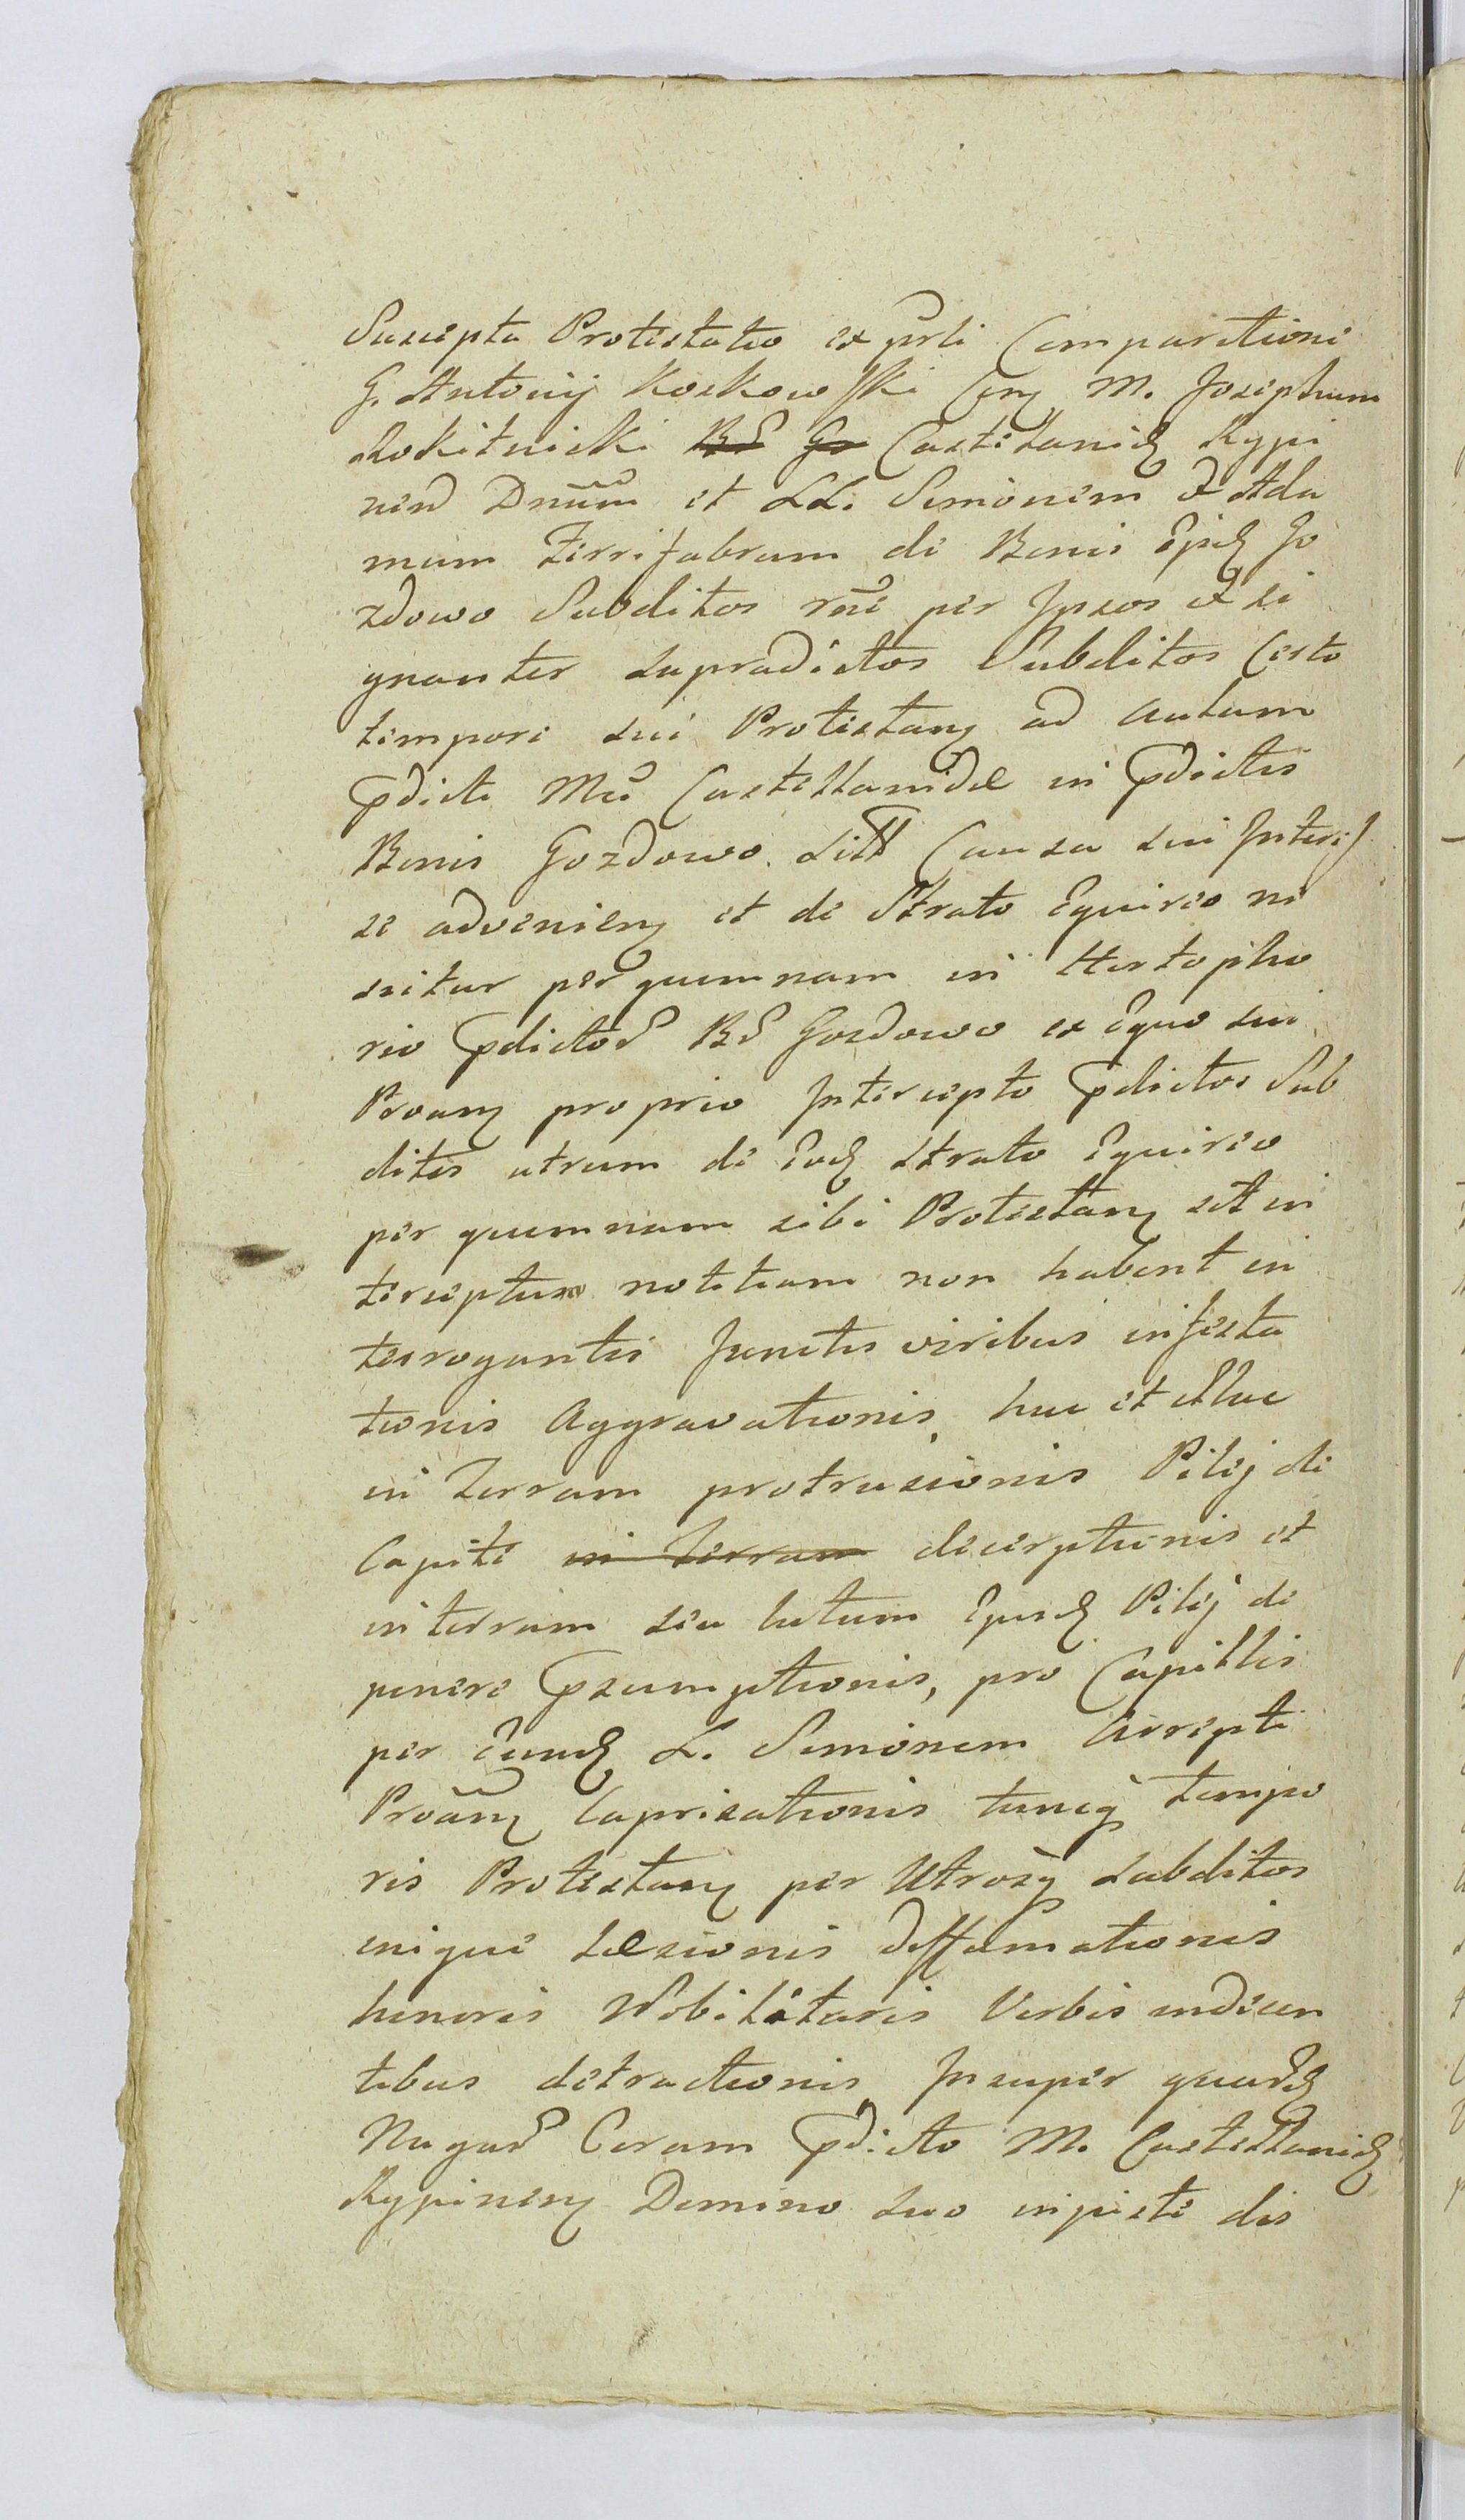 Suscepta Protestatio ex prli Comparitione
G. Antonij Koskowski Cons M. Josephum
Rokitnicki Bd Gr Castelanid Rypi
nens Dnum et LL. Simonem et Ada
mum Ferrifabrum de Bonis Ejusd Go
zdowo Subditos rne per Ipsos et si
gnanter supradictos Subditos Certo
tempore sui Protestans ad aulam
pdicti Mci Castellanidae in pdictis
Bonis Gozdowo Causa sui Interes
se adveniens et de Strato Equireo ne
scitur per quemnam in Hortopho
rio pdictor Bd Gozdowo ex Equo sui
Proans proprio Intercepto pdictos Sub
ditos utrum de Eod strato Equireo
per quemnam sibi Protestans sit in
terceptum notitiam non habent in
terrogantis Junctis viribus infesta
tionis Aggravationis, huc et illuc
in Terram protrusionis Pilej de
Capite in terram decerptionis et
in terram seu lutum Ejusd Pilej de
ponere psumptionis, pro Capillis
per Eund L. Simonem Arrepti
Proans Caprisationis tuncq tempo
ris Protestans per Utrosq subditos
inique Laesionis diffamationis
honoris Nobilitaris Verbis indicen
tibus detractionis Insuper quod
Nagad Coram pdicto M. Castellanid
Rypinens Domino suo injuste dis